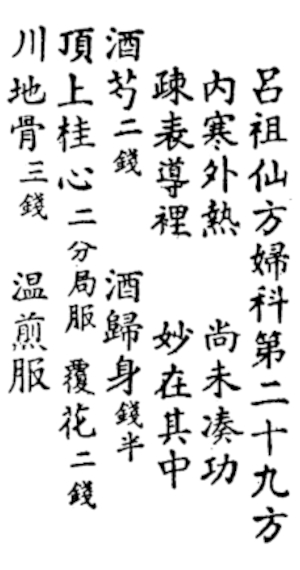 呂祖仙方婦科第二十九方
內寒外熱 尚未凑功
疎表導裡 妙在其中
酒芍二錢 酒歸身錢半
頂上桂心二分局服 覆花二錢
川地骨三錢 温煎服